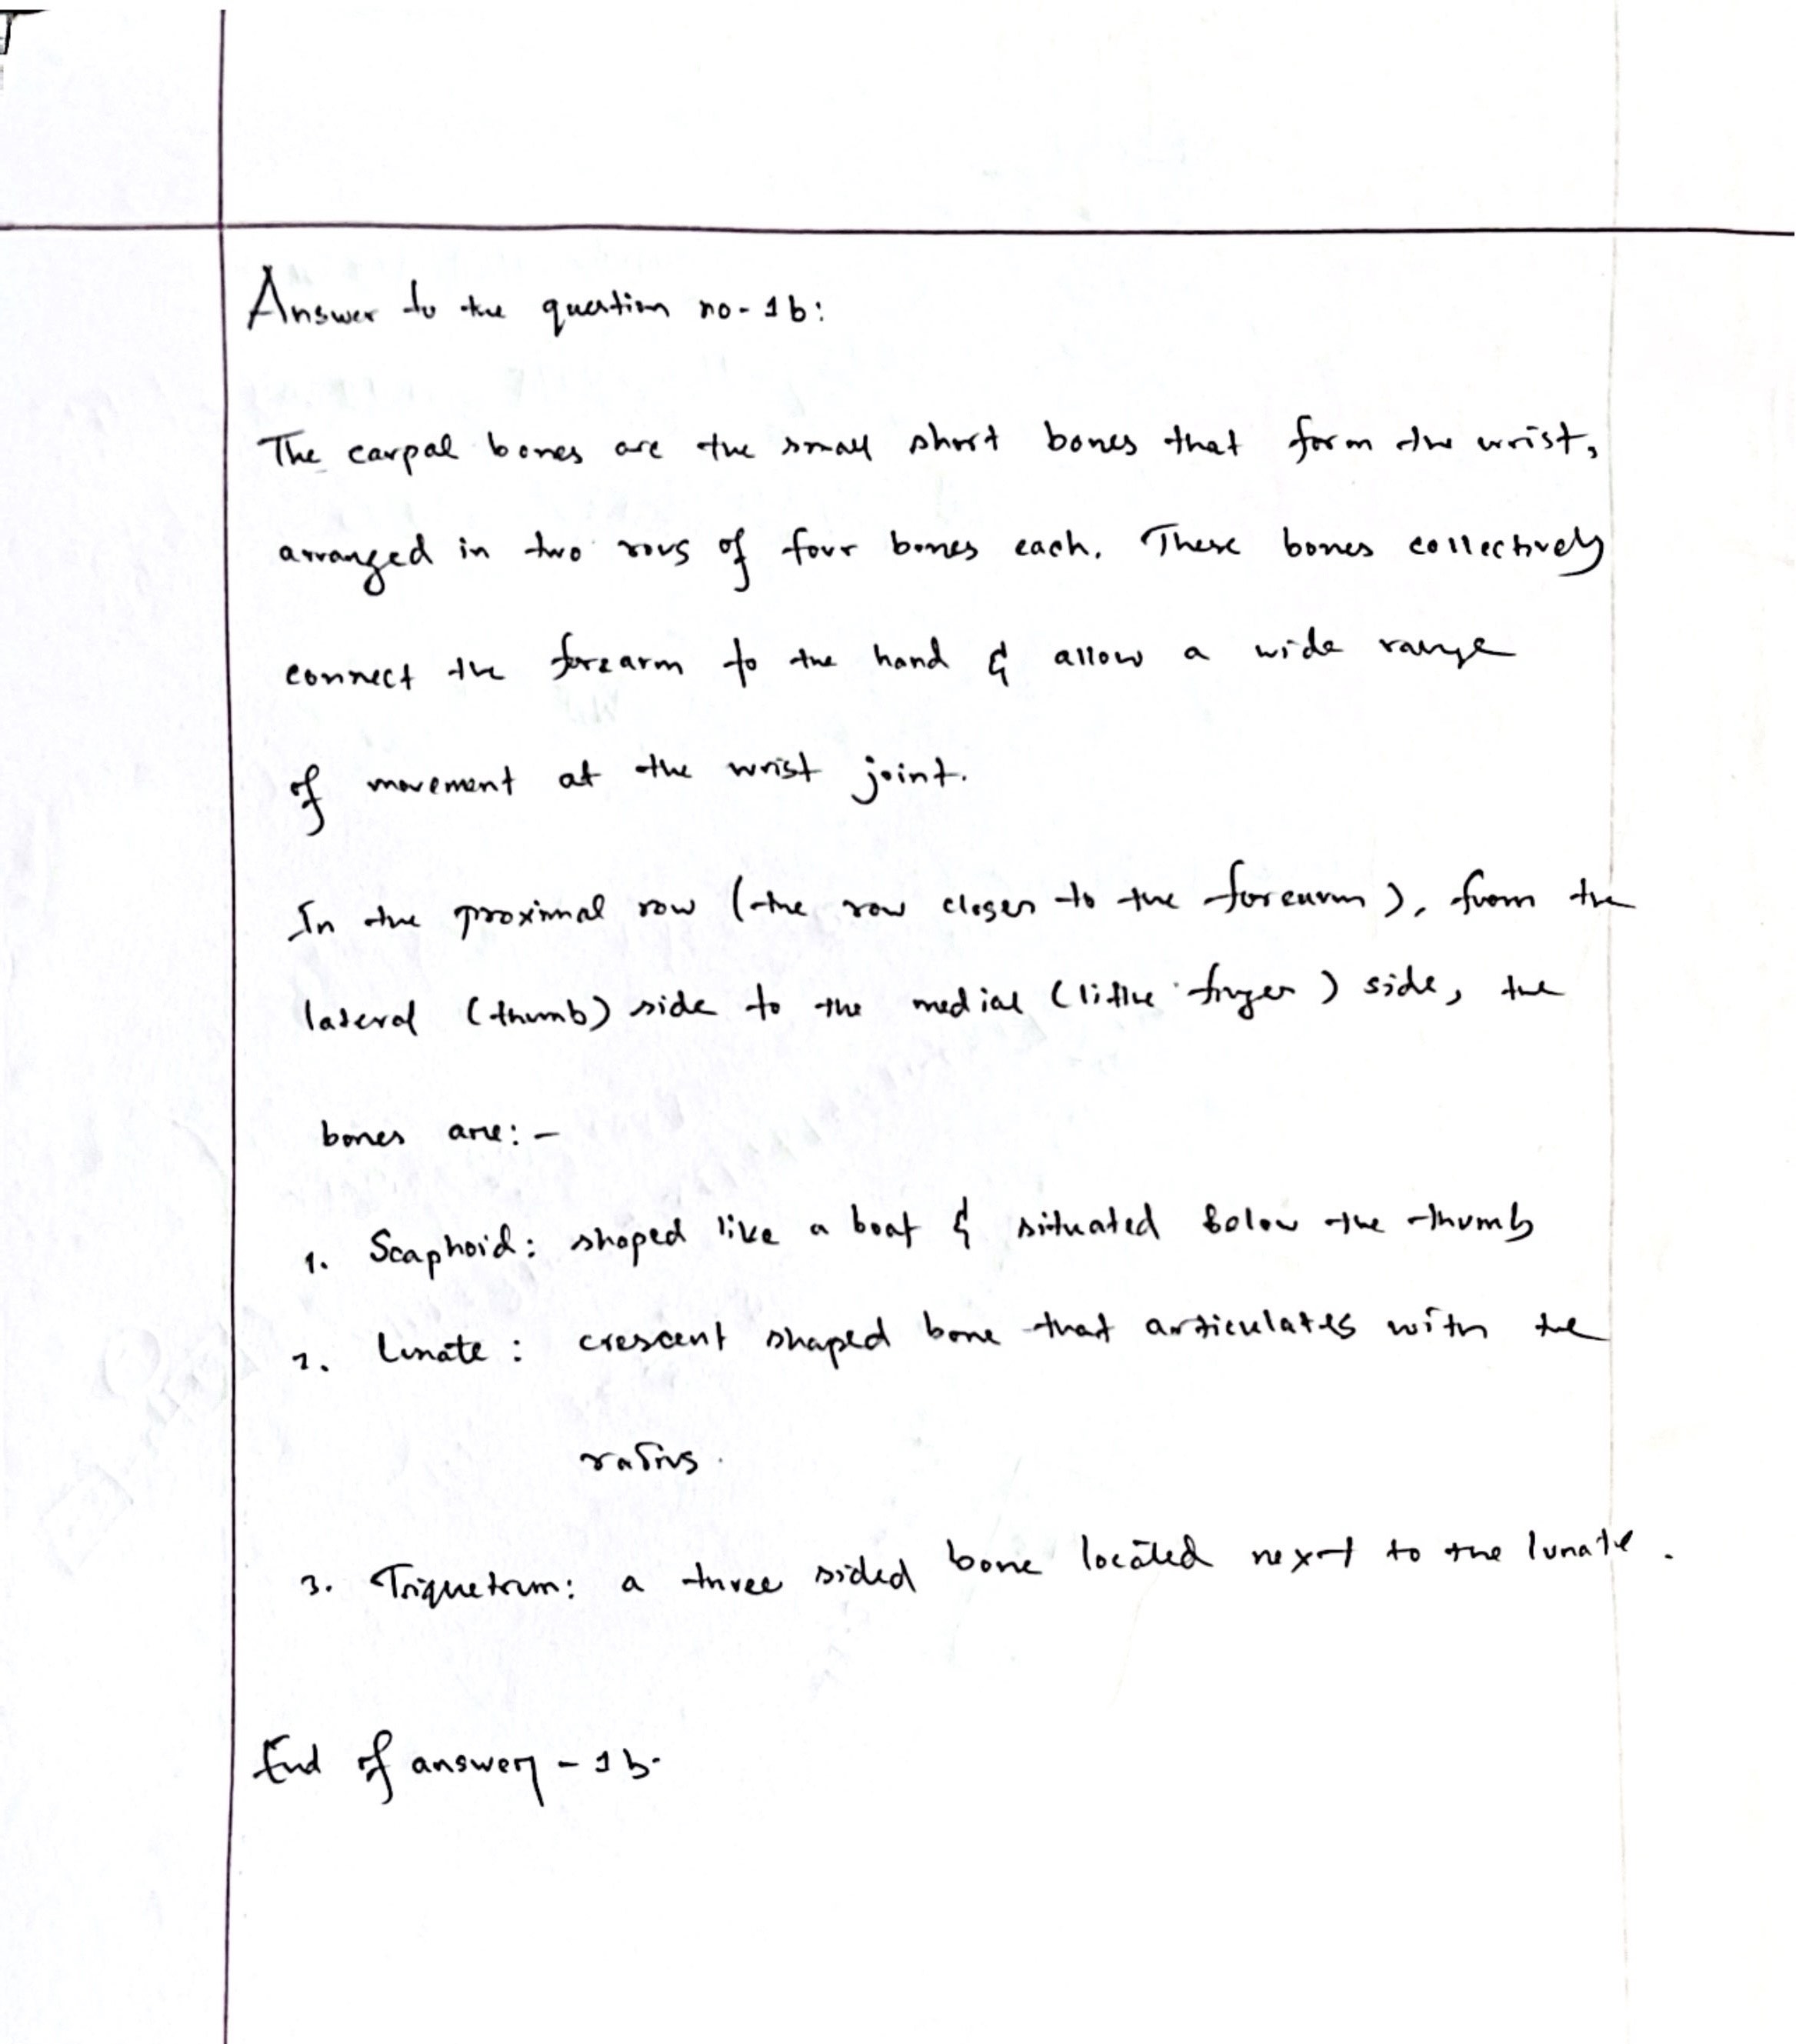 Answer to the question no- 1b:
The carpal bones are the small short bones that form the wrist,
arranged in two rows of four bones each. These bones collectively
connect the forearm to the hand & allow a wide range
of movement at the wrist joint.
In the proximal row (the row closer to the forearm), from the
lateral (thumb) side to the medial (little finger) side, the
bones are: -
1. Scaphoid: shaped like a boat & situated below the thumb
2. Lunate : crescent shaped bone that articulates with the
radius.
3. Triquetrum: a three sided bone located next to the lunate.
End of answer - 1b.